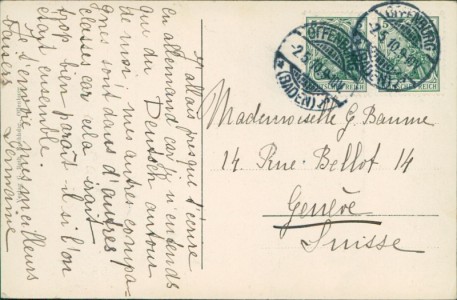 J'allais presque t'écrire
en allemand car je n'entends
que du Deutsch autour
de moi, mes autres compa-
gnes sont dans d'autres
classes car cela irait
trop bien paraît il si l'on
était ensemble.
Je t'envoie mes meilleurs
baisers
Germaine
OFFENBURG
2.5.10.
(BADEN)
OFFENBURG
2.5.10.
(BADEN)
DEUTSCHES REICH
Mademoiselle G. Baume
14 Rue Bellot 14
Genève
Suisse